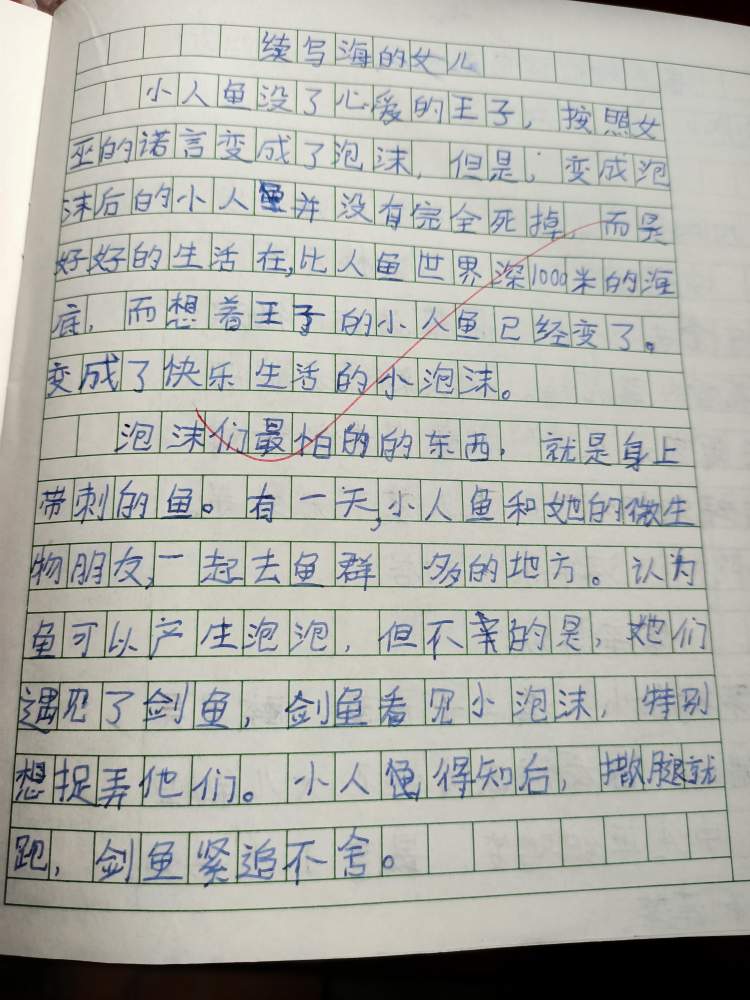 续写海的女儿
小人鱼没了心爱的王子，按照女
巫的诺言变成了泡沫，但是，变成泡
沫后的小人鱼并没有完全死掉，而是
好好的生活在，比人鱼世界深1000米的海
底，而想着王子的小人鱼已经变了。
变成了快乐生活的小泡沫。
泡沫们最怕的的东西，就是身上
带刺的鱼。有一天，小人鱼和她的微生
物朋友，一起去鱼群多的地方。认为
鱼可以产生泡泡，但不幸的是，她们
遇见了剑鱼，剑鱼看见小泡沫，特别
想捉弄他们。小人鱼得知后，撒腿就
跑，剑鱼紧追不舍。